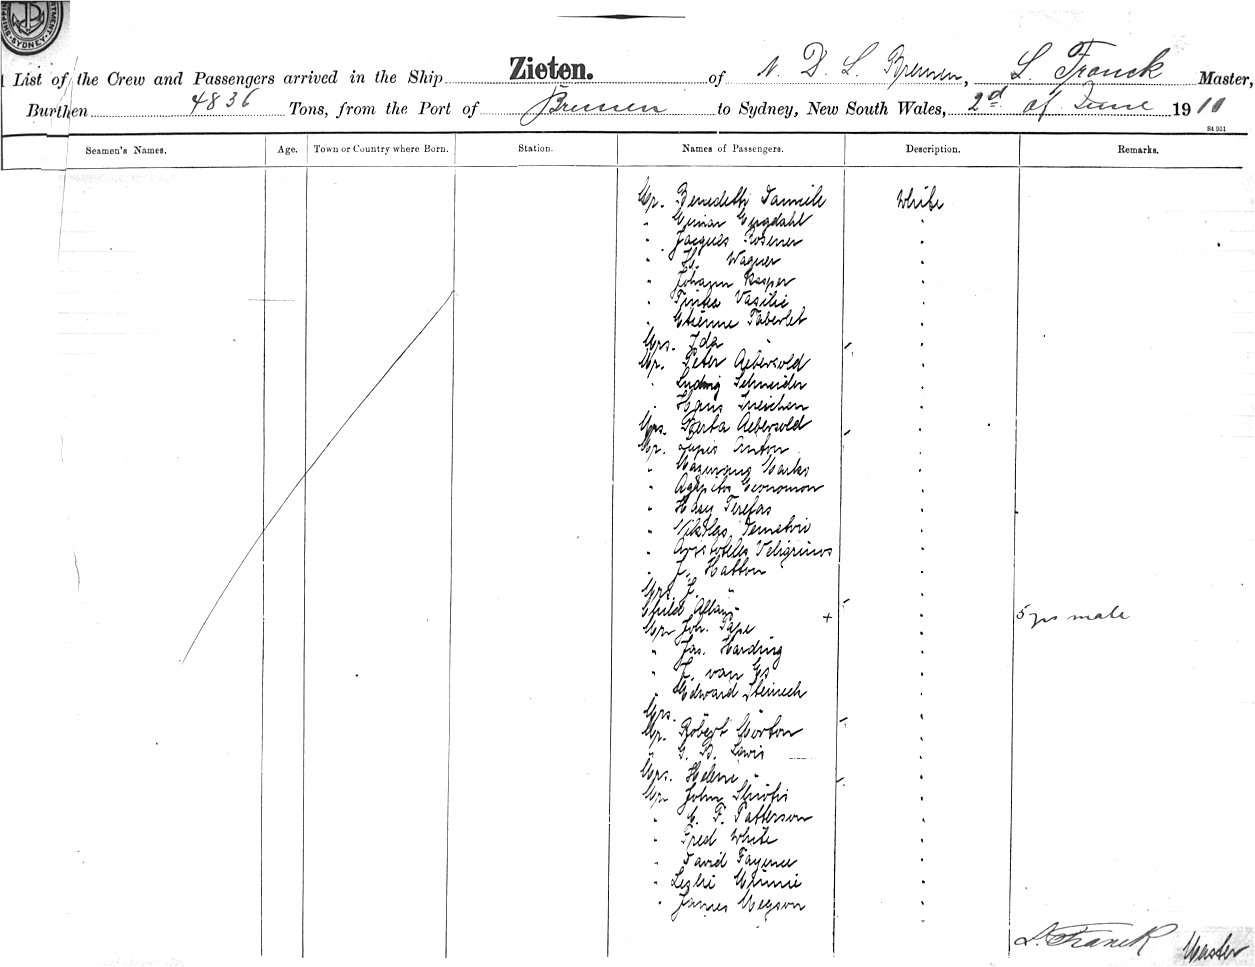 SYDNEY
List of the Crew and Passengers arrived in the Ship Zieten. of N. D. L. Bremen, L. Franck Master,
Burthen 4836 Tons, from the Port of Bremen to Sydney, New South Wales, 2d of June 1910
St 951
Seamen's Names. Age. Town or Country where Born. Station. Names of Passengers. Description. Remarks.
Mr. Benedetti White
" Gunnar Engdahl "
" Jacques Rosener "
" H. Wagner "
" Johann Kasper "
" Vasilie "
" Etienne Taberlet "
Mrs. Ida " "
Mr. Peter Aebersold "
" Ludwig Schneider "
" Hans Ineichen "
Mrs. Berta Aebersold "
Mr. Anton "
" Marko "
" Economon "
" Harry "
" Nikolas "
" Aristoteles "
" J. Hatton "
Mrs. J. " "
Child " + " 5 yrs male
Mr Joh. Pape "
" Jas. Harding "
" J. van Es "
" Edward "
Mrs. " " "
Mr. Robert Morton "
" G. B. Lewis "
Mrs. Helene " "
Mr John "
" E. F. Patterson "
" Fred White "
" David "
" Leslie "
" James Megson "
L. Franck Master